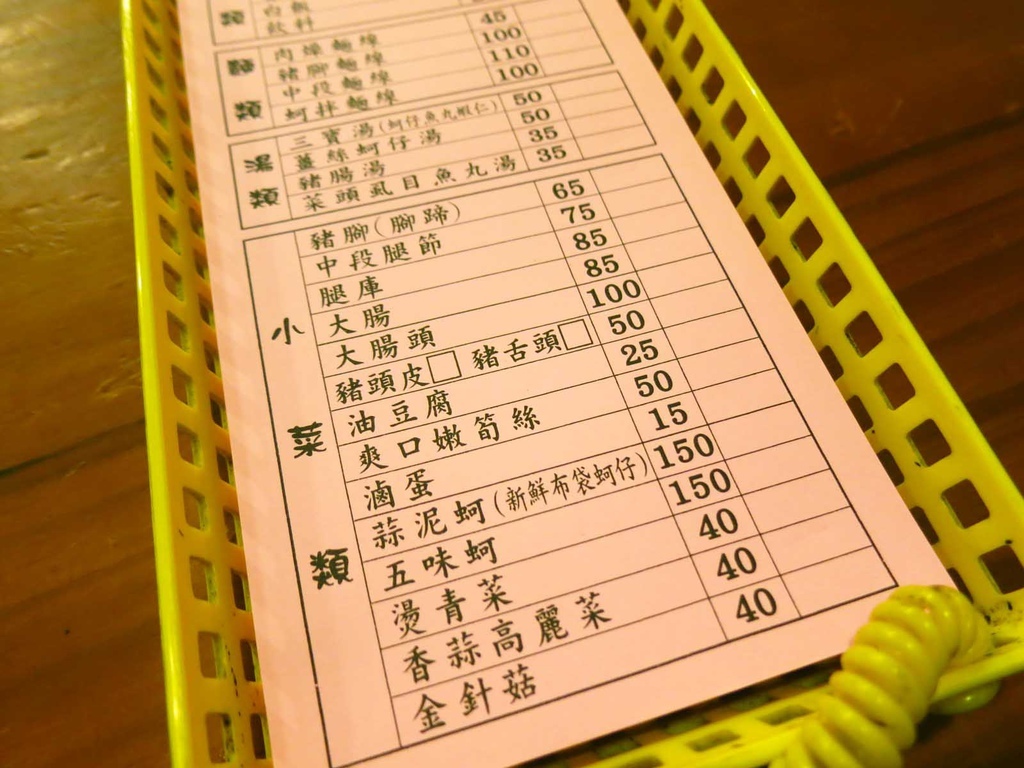 類
白飯
飲料
麵類
肉燥麵線 45
豬腳麵線 100
中段麵線 110
蚵拌麵線 100
湯類
三寶湯(蚵仔魚丸蝦仁) 50
薑絲蚵仔湯 50
豬腸湯 35
菜頭虱目魚丸湯 35
小菜類
豬腳(腳蹄) 65
中段腿節 75
腿庫 85
大腸 85
大腸頭 100
豬頭皮□ 豬舌頭□ 50
油豆腐 25
爽口嫩筍絲 50
滷蛋 15
蒜泥蚵(新鮮布袋蚵仔) 150
五味蚵 150
燙青菜 40
香蒜高麗菜 40
金針菇 40